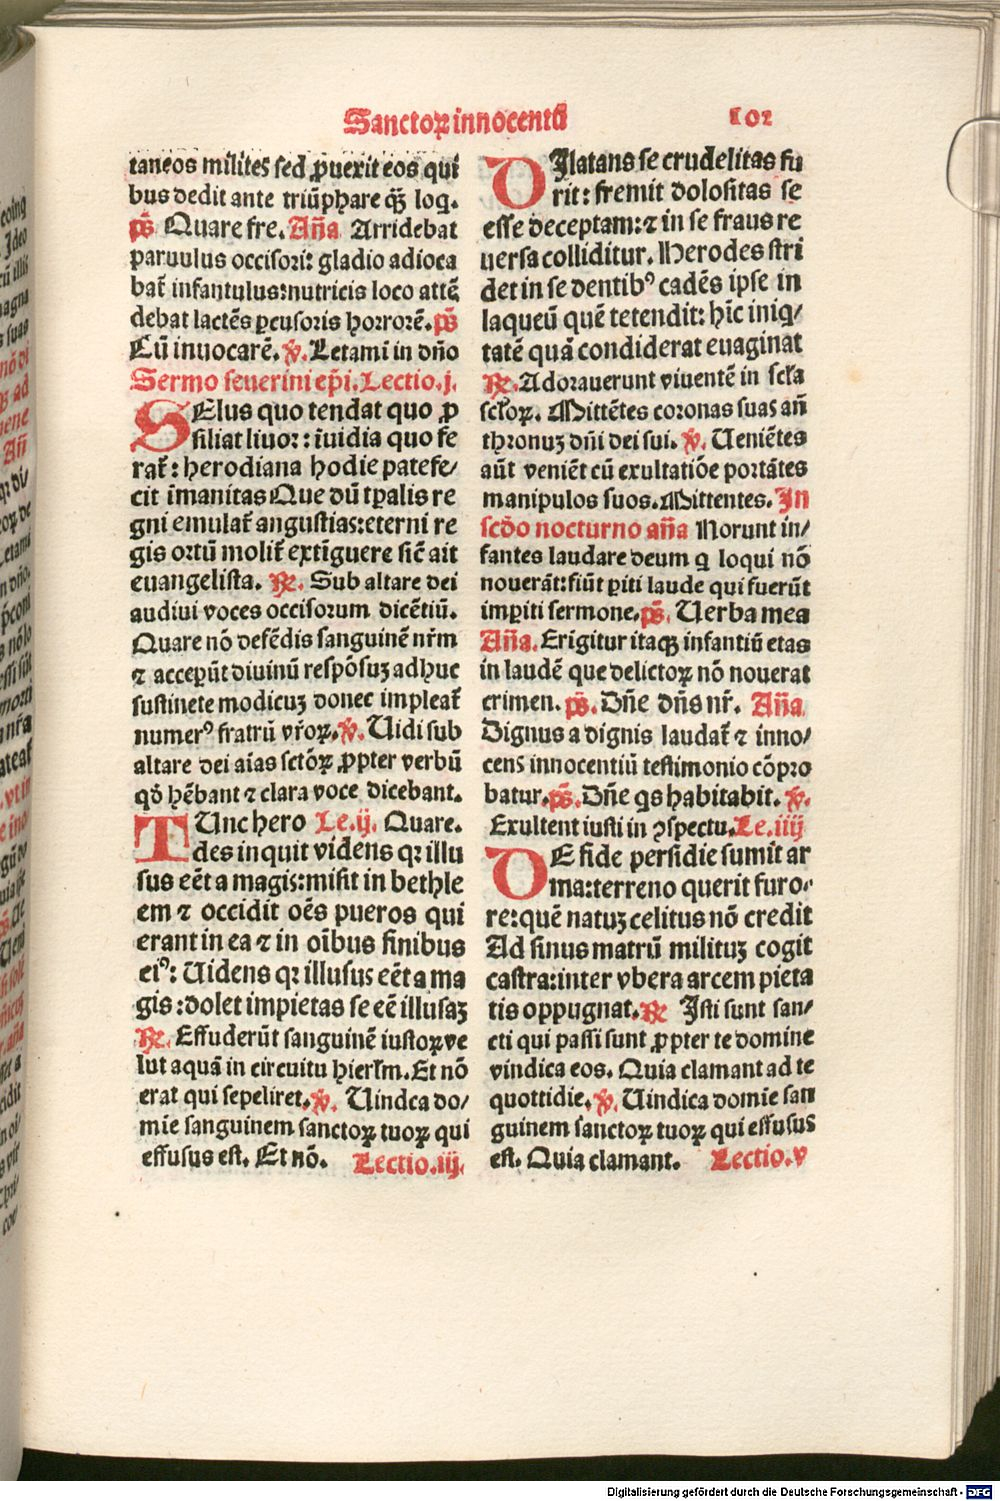 Sanctoꝝ innocentū 102
taneos milites sed ꝓuexit eos qui
bus dedit ante triūphare q̈ꝫ loq.
p̄s Quare fre. Añā Arridebat
paruulus occisori: gladio adioca
bat᷑ infantulus: nutricis loco attē
debat lactēs ꝑcusoris horrorē. p̄s
Cū inuocarē. ℣. Letami in dño
Sermo seuerini ep̄i. Lectio.j.
SElus quo tendat quo ꝓ
siliat liuor: : īuidia quo fe
rat᷑: herodiana hodie patefe/
cit īmanitas Que dū tꝑalis re
gni emulat᷑ angustias: eterni re
gis ortū molit᷑ extīguere sic̄ ait
euangelista. ℟. Sub altare dei
audiui voces occisorum dicētiū.
Quare nō defēdis sanguinē nr̄m
⁊ acceperūt diuinū respōsuꝫ adhuc
sustinete modicuꝫ donec impleat᷑
numerꝰ fratrū vr̄oꝝ. ℣. Uidi sub
altare dei aīas sctōꝝ ꝓpter verbū
qd̄ hēbant ⁊ clara voce dicebant.
TUnc hero Le.ij. Quare.
des inquit videns qꝛ illu
sus eēt a magis: misit in bethle
em ⁊ occidit oēs pueros qui
erant in ea ⁊ in oībus finibus
eiꝰ: Uidens qꝛ illusus eēt a ma
gis: dolet impietas se eē illusaꝫ
℟. Effuderūt sanguinē iustoꝝ ve
lut aquā in circuitu hierl̄m. Et nō
erat qui sepeliret. ℣. Uindca do/
mie sanguinem sanctoꝝ tuoꝝ qui
effusus est. Et nō. Lectio.iij.
DIlatans se crudelitas fu
rit: fremit dolositas se
esse deceptam: ⁊ in se fraus re
uersa colliditur. Herodes stri
det in se dentibꝰ cadēs ipse in
laqueū quē tetendit: hīc iniq/
tatē quā condiderat euaginat
℟. Adorauerunt viuentē in scl̄a
scl̄oꝝ. Mittētes coronas suas añ
thronuꝫ dñi dei sui. ℣. Ueniētes
aūt veniēt cū exultatiōe portātes
manipulos suos. Mittentes. In
scd̄o nocturno añā Norunt in/
fantes laudare deum q loqui nō
nouerāt: fiūt ꝑiti laude qui fuerūt
imꝑiti sermone. p̄s. Uerba mea
Añā. Erigitur itaqꝫ infantiū etas
in laudē que delictoꝝ nō nouerat
crimen. p̄s. Dñe dñs nr̄. Añā
Dignus a dignis laudat᷑ ⁊ inno/
cens innocentiū testimonio cōpro
batur. p̄s. Dñe qs habitabit. ℣.
Exultent iusti in ꝯspectu. Le.iiij
DE fide perfidie sumit ar
ma: terreno querit furo/
re: quē natuꝫ celitus nō credit
Ad sinus matrū milituꝫ cogit
castra: inter vbera arcem pieta
tis oppugnat. ℟ Isti sunt san/
cti qui passi sunt ꝓpter te domine
vindica eos. Quia clamant ad te
quottidie. ℣. Uindica domie san
guinem sanctoꝝ tuoꝝ qui effusus
est. Quia clamant. Lectio.v
Digitalisierung gefördert durch die Deutsche Forschungsgemeinschaft - DFG